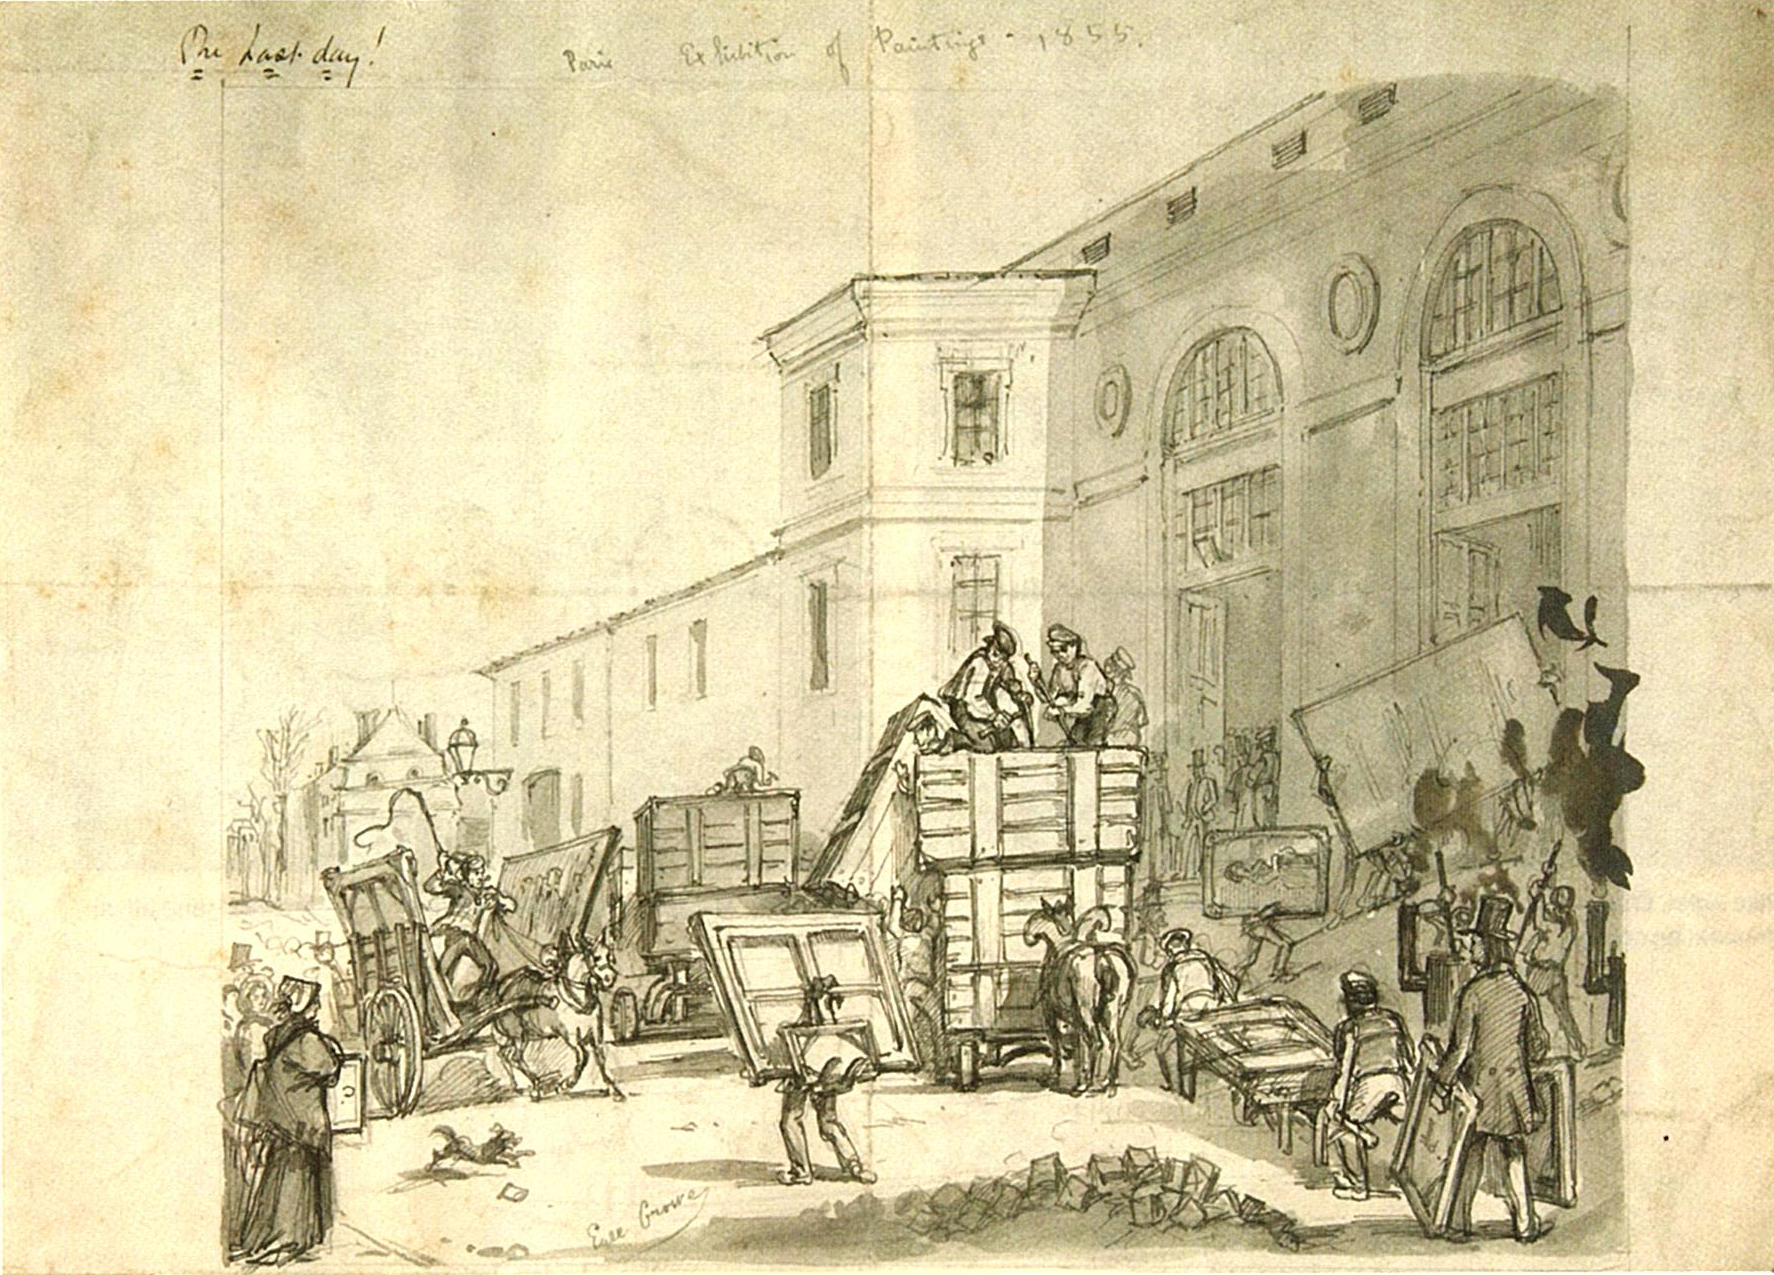 The Last day!
Paris Exhibition of Paintings - 1855.
Eyre Crowe